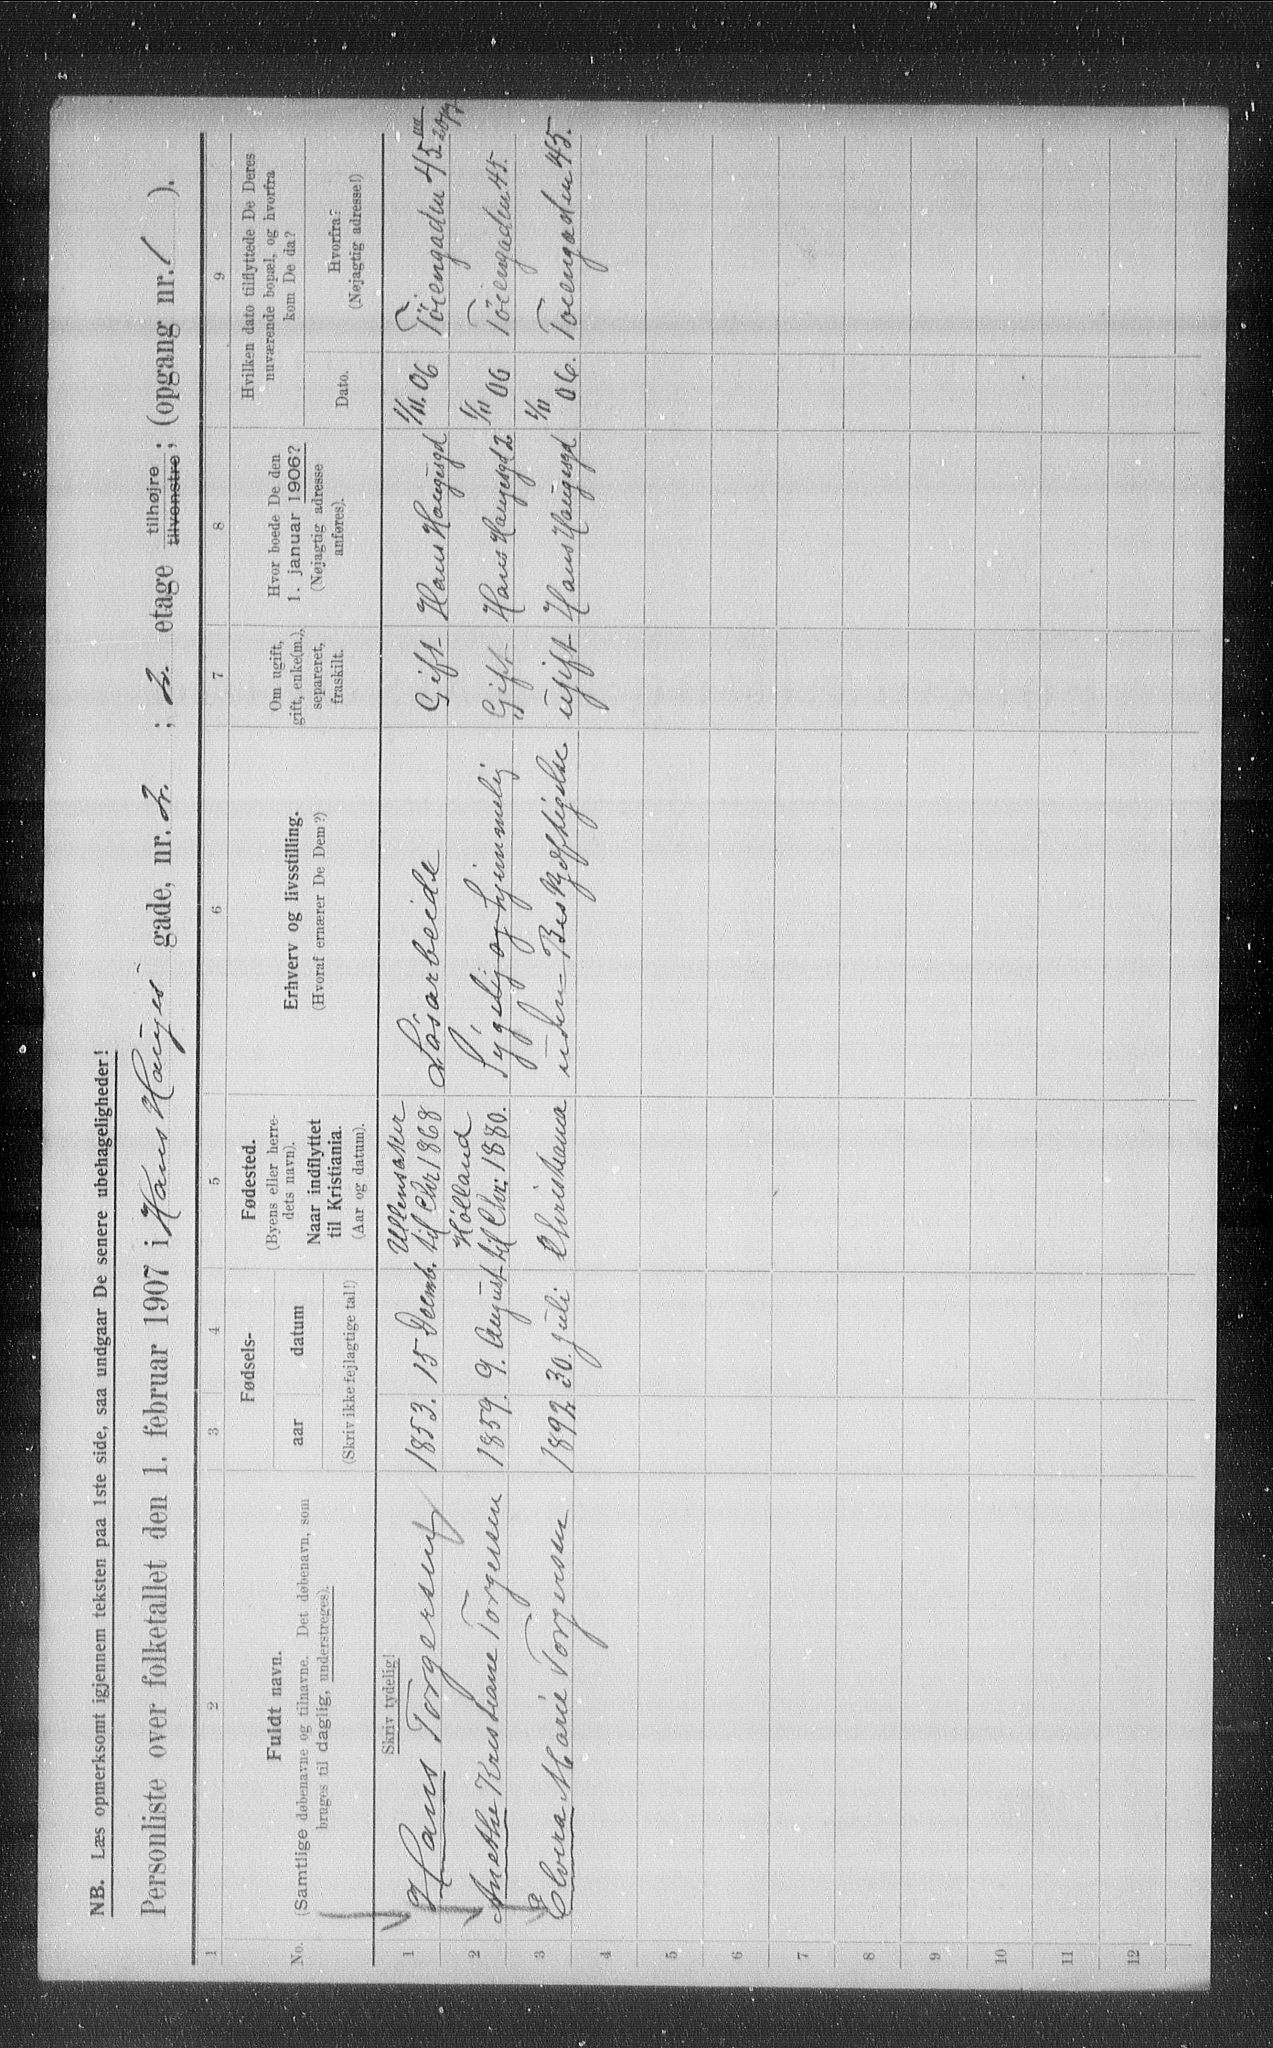 NB. Læs opmerksomt igjennem teksten paa 1ste side, saa undgaar De senere ubehageligheder!
Personliste over folketallet den 1. februar 1907 i Hans Hauges gade, nr. 2. ; 2. etage tilhøjre tilvenstre; (opgang nr. 1 ).
1 2 3 4 5 6 7 8 9
No.
Fuldt navn.
(Samtlige døbenavne og tilnavne. Det døbenavn, som
bruges til daglig, understreges).
Fødsels-
aar datum
(Skriv ikke fejlagtige tal!)
Fødested.
(Byens eller herre-
dets navn).
Naar indflyttet
til Kristiania.
(Aar og datum).
Erhverv og livsstilling.
(Hvoraf ernærer De Dem?)
Om ugift,
gift, enke(m.),
separeret,
fraskilt.
Hvor boede De den
1. januar 1906?
(Nøjagtig adresse
anføres).
Hvilken dato tilflyttede De Deres
nuværende bopæl, og hvorfra
kom De da?
Dato.
Hvorfra?
(Nøjagtig adresse!)
Skriv tydelig!
1 Hans Torgersen 1853. 15 Decmb. Ullensaker til Chr 1868 Løsarbeide Gift Hans Haugesgd 1/11. 06 Töiengaden 45
2 Anethe Kristiane Torgersen 1859. 9. August Holland til Chr: 1880. Sygelig og hjemmelig Gift Hans Haugesgd 2 1/11 06 Töiengaden 45.
3 Elvera Marie Torgersen 1892 30. juli Christiania uden Beskjæftigelse ugift Hans Haugesgd 1/11 06. Toiengaden 45.
4
5
6
7
8
9
10
11
12